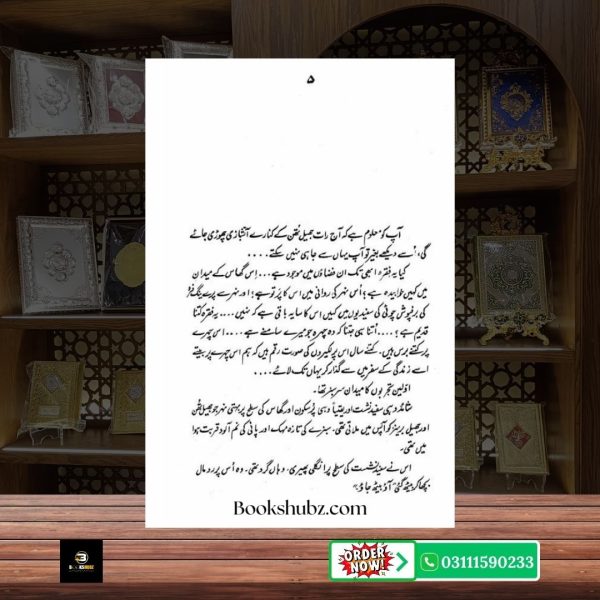 ۵
آپ کو معلوم ہے کہ آج رات جھیل تھن کے کنارے آتشبازی چھوڑی جائے
گی، اُسے دیکھے بغیر تو آپ یہاں سے جا ہی نہیں سکتے ....
کیا یہ فقرہ ابھی تک ان فضاؤں میں موجود ہے ... اِس گھاس کے میدان
میں کہیں خوابیدہ ہے ؟ اُس نہر کی روانی میں اس کا پرتو ہے ؟ اور نہر سے پرے ینگ فراؤ
کی برفپوش چوٹی کی سفیدیوں میں کہیں اس کا سایہ باقی ہے کہ نہیں .... یہ فقرہ کتنا
قدیم ہے ؟ .... اُتنا ہی جتنا کہ وہ چہرہ جو میرے سامنے ہے .... اس چہرے
پر کتنے برس ہیں۔ کتنے سال اس پر لکیروں کی صورت رقم ہیں کہ ہم اس چہرے پر بیتے
اسے زندگی کے سفر میں سے گذار کر یہاں تک لائے ....
اوّلین تجربوں کا میدان سرسبز تھا۔
شائد وہی سفید نشست اور یقیناً وہی پُرسکون اور گھاس کی سطح پر بہتی نہر جو جھیل تھن
اور جھیل برینز کو آپس میں ملاتی تھی۔ سبزے کی تازہ مہک اور پانی کی نم آلود قربت ہوا
میں تھی۔
اس نے سفید نشست کی سطح پر انگلی پھیری۔ وہاں گرد تھی۔ وہ اُس پر رومال
بچھا کر بیٹھ گئی "آؤ بیٹھ جاؤ۔"
Bookshubz.com
ORDER NOW!
03111590233